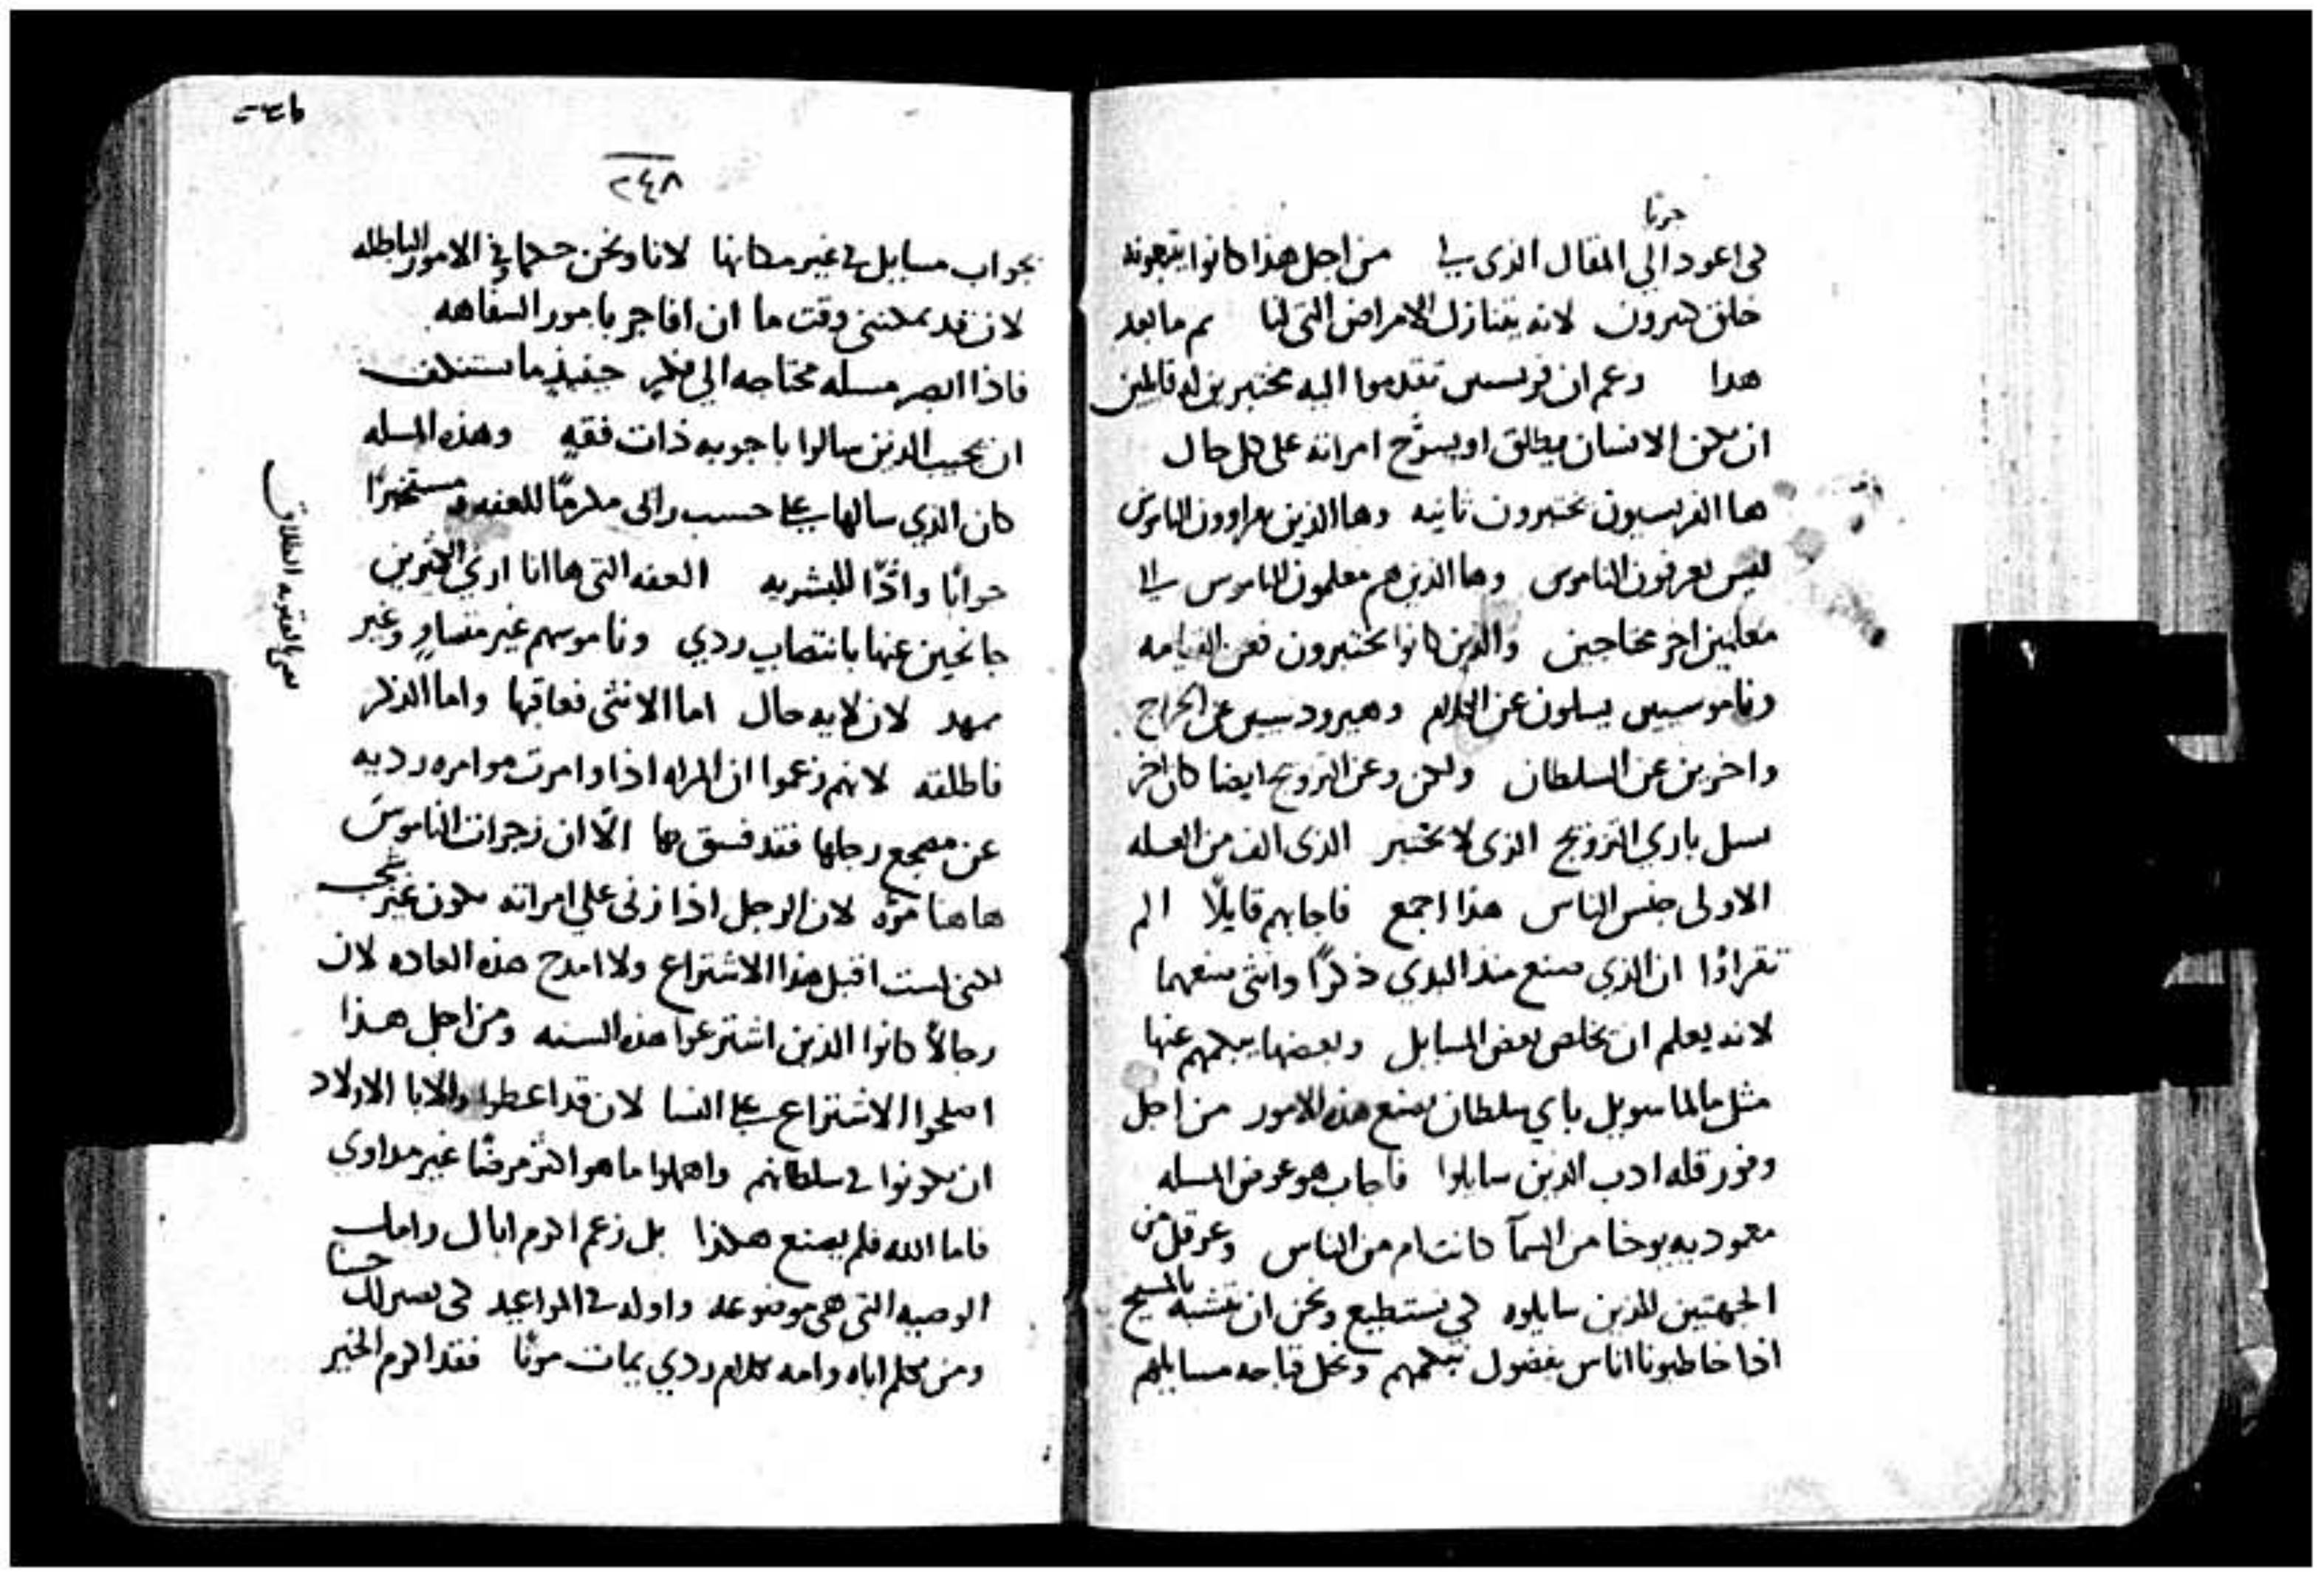 جريًا
كي اعود الي المقال الذي لي من اجل هذا كانوا يتبعونه
خلق كثيرون لانه يتنازل الامراض التي لنا ثم ما بعد
هذا وعم ان فريسيين تقدموا اليه مختبرين له قايلين
ان يمكن الانسان يطلق او يسرّح امراته على كل حال
ها الفريسيون يختبرون ثانيه وها الذين يقراوون الناموس
ليس يعرفون الناموس وها الذين هم معلمون الناموس الي
معلمين اخر محتاجين والذين كانوا يختبرون فعن القيامه
وناموسيين يسلون عن الكمال وهيروديسيين عن الخراج
واخرين عن السلطان ولكن وعن التزويج ايضا كان اخر
يسل باري التزويج الذي لا يختبر الذي الف من العله
الاولى جنس الناس هذا اجمع فاجابهم قايلًا الم
تقراوا ان الذي صنع منذ البدي ذكرًا وانثى صنعهما
لانه يعلم ان يخلص بعض المسايل وبعضها يبكمهم عنها
مثل ما لما سويل باي سلطان يصنع هذه الامور من اجل
وفور قله ادب الذين سايلوا فاجاب هو عوض المسله
معموديه يوحنا من السمآ كانت ام من الناس وعرقل من
الجهتين الذين سايلوه كي نستطيع ونحن ان نتشبه بالمسيح
اذا خاطبونا اناس بفضول نبكمهم ونحل قباحه مسايلهم
٢٤٨
بجواب مسايل في غير مكانها لانا ونحن حكما في الامور الباطله
لان قد يمكنني وقت ما ان افاخر بامور السفاهه
فاذا ابصر مسله محتاجه الي فكر حينيذ ما يستنكف
ان يجيب الذين سالوا باجوبه ذات فقه وهذه المسله
كان الذي سالها على حسب رائى مكرمًا للعفه ومستخبرًا
جوابًا وادًّا للبشريه العفه التي ها انا اري الكثيرين
جانحين عنها بانتصاب ردي وناموسهم غير متساوٍ وغير
ممهد لان لايه حال اما الانثى فعاقبها واما الذكر
فاطلقه لانهم زعموا ان المراه اذا وامرت موامره رديه
عن مضجع رجلها فقد فسق بها الّا ان زجرات الناموس
هاهنا مرّه لان الرجل اذا زنى علي امراته يكون غير
لكني لست اقبل هذا الاشتراع ولا امدح هذه العاده لان
رجالًا كانوا الذين اشترعوا هذه السنه ومن اجل هذا
اصلحوا الاشتراع على النسا لان قد اعطوا والابا الاولاد
ان يكونوا في سلطانهم واهملوا ما هو اكثر مرضًا غير مداوي
فاما الله فلم يصنع هكذا بل زعم اكرم اباك وامك
الوصيه التي هي موضوعه واوله في المواعيد كي يصير لك حسنا
ومن يكلم اباه وامه بكلام ردي يمات موتًا فقد اكرم الخير